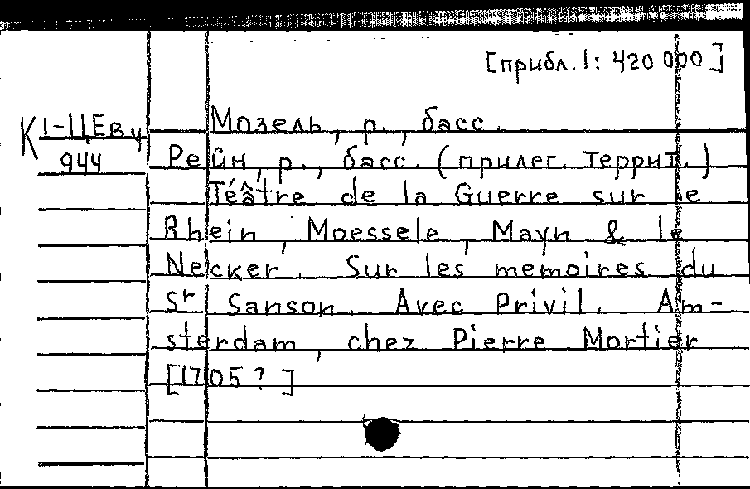 [прибл. 1: 420 000]
К 1-ЦЕв 4
944
Мозель, р., басс.
Рейн, р., басс. (прилег. террит.)
Téâtre de la Guerre sur le
Rhein, Moessele, Mayn & le
Necker. Sur les memoires du
Sr Sanson. Avec Privil. Am-
sterdam, chez Pierre Mortier
[1705?]